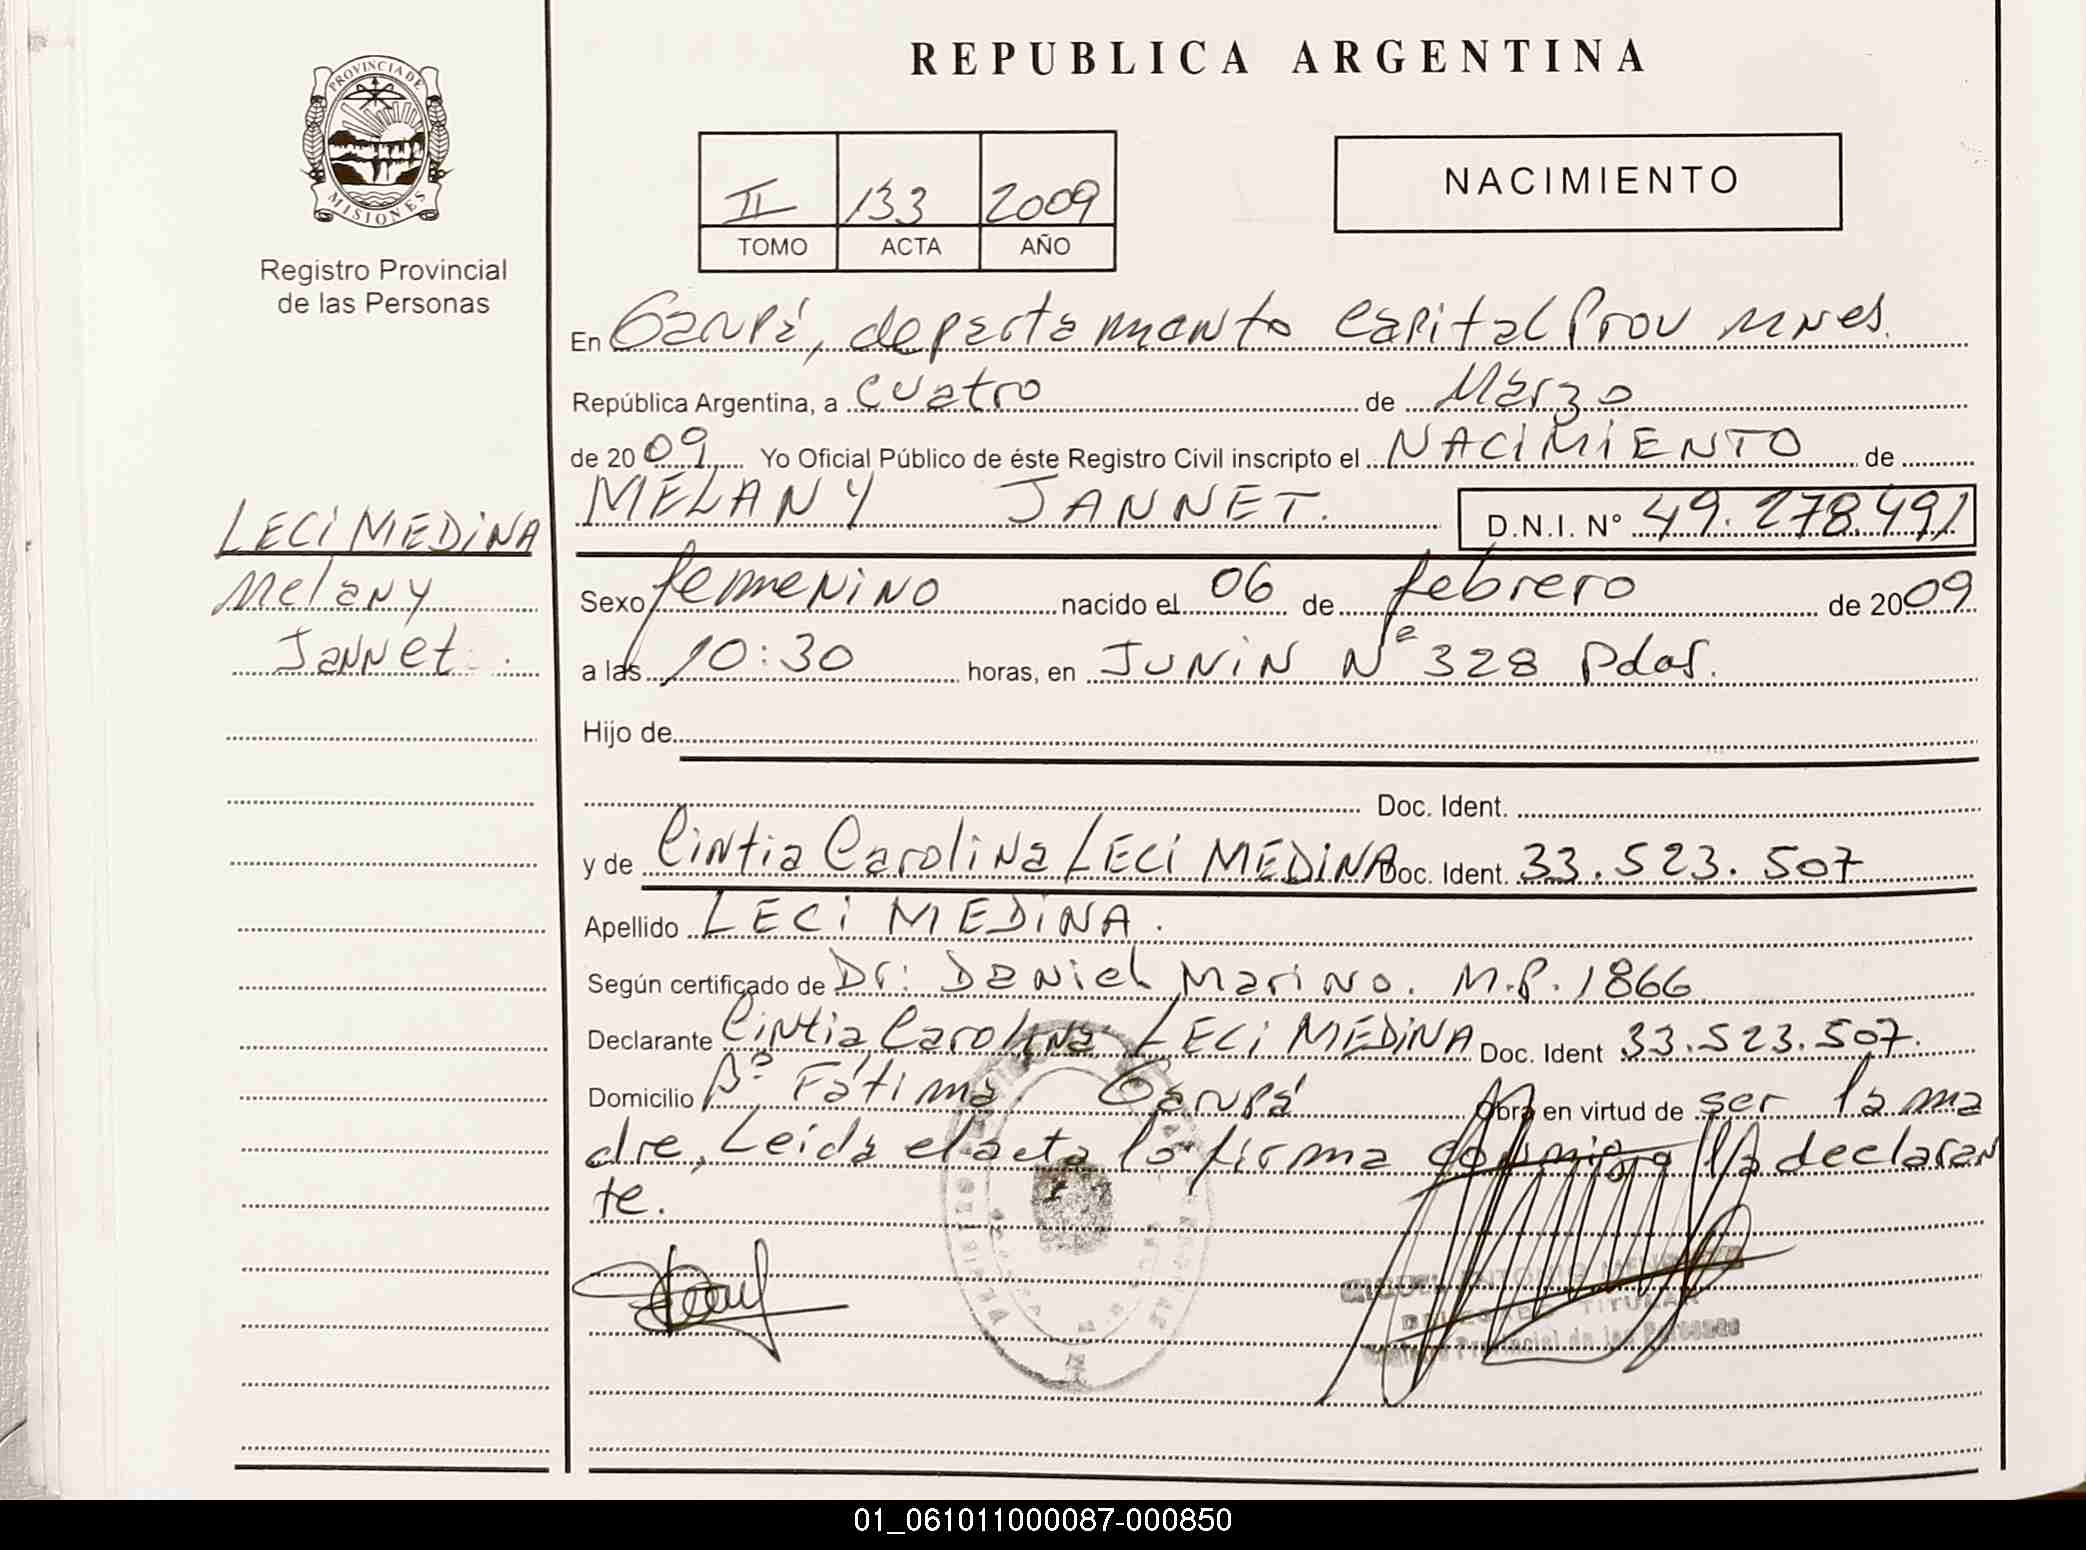 REPUBLICA ARGENTINA
PROVINCIA DE
MISIONES
Registro Provincial
de las Personas
II 133 2009
TOMO ACTA AÑO
NACIMIENTO
En Garupá, departamento Capital Prov Mnes.
República Argentina, a cuatro de Marzo
de 2009 Yo Oficial Público de éste Registro Civil inscripto el NACIMIENTO de
MELANY JANNET. D.N.I. N° 49.278.491
LECI MEDINA
Melany
Jannet.
Sexo femenino nacido el 06 de febrero de 2009
a las 10:30 horas, en JUNIN Nº 328 Pdas.
Hijo de
Doc. Ident.
y de Cintia Carolina LECI MEDINA Doc. Ident. 33.523.507
Apellido LECI MEDINA.
Según certificado de Dr. Daniel Marino. M.P. 1866
Declarante Cintia Carolina LECI MEDINA Doc. Ident 33.523.507.
Domicilio Bº Fátima. Garupá Obra en virtud de ser la ma
dre, Leida el acta la firma conmigo la declaran
te.
TITULAR
Provincial de las Personas
01_061011000087-000850